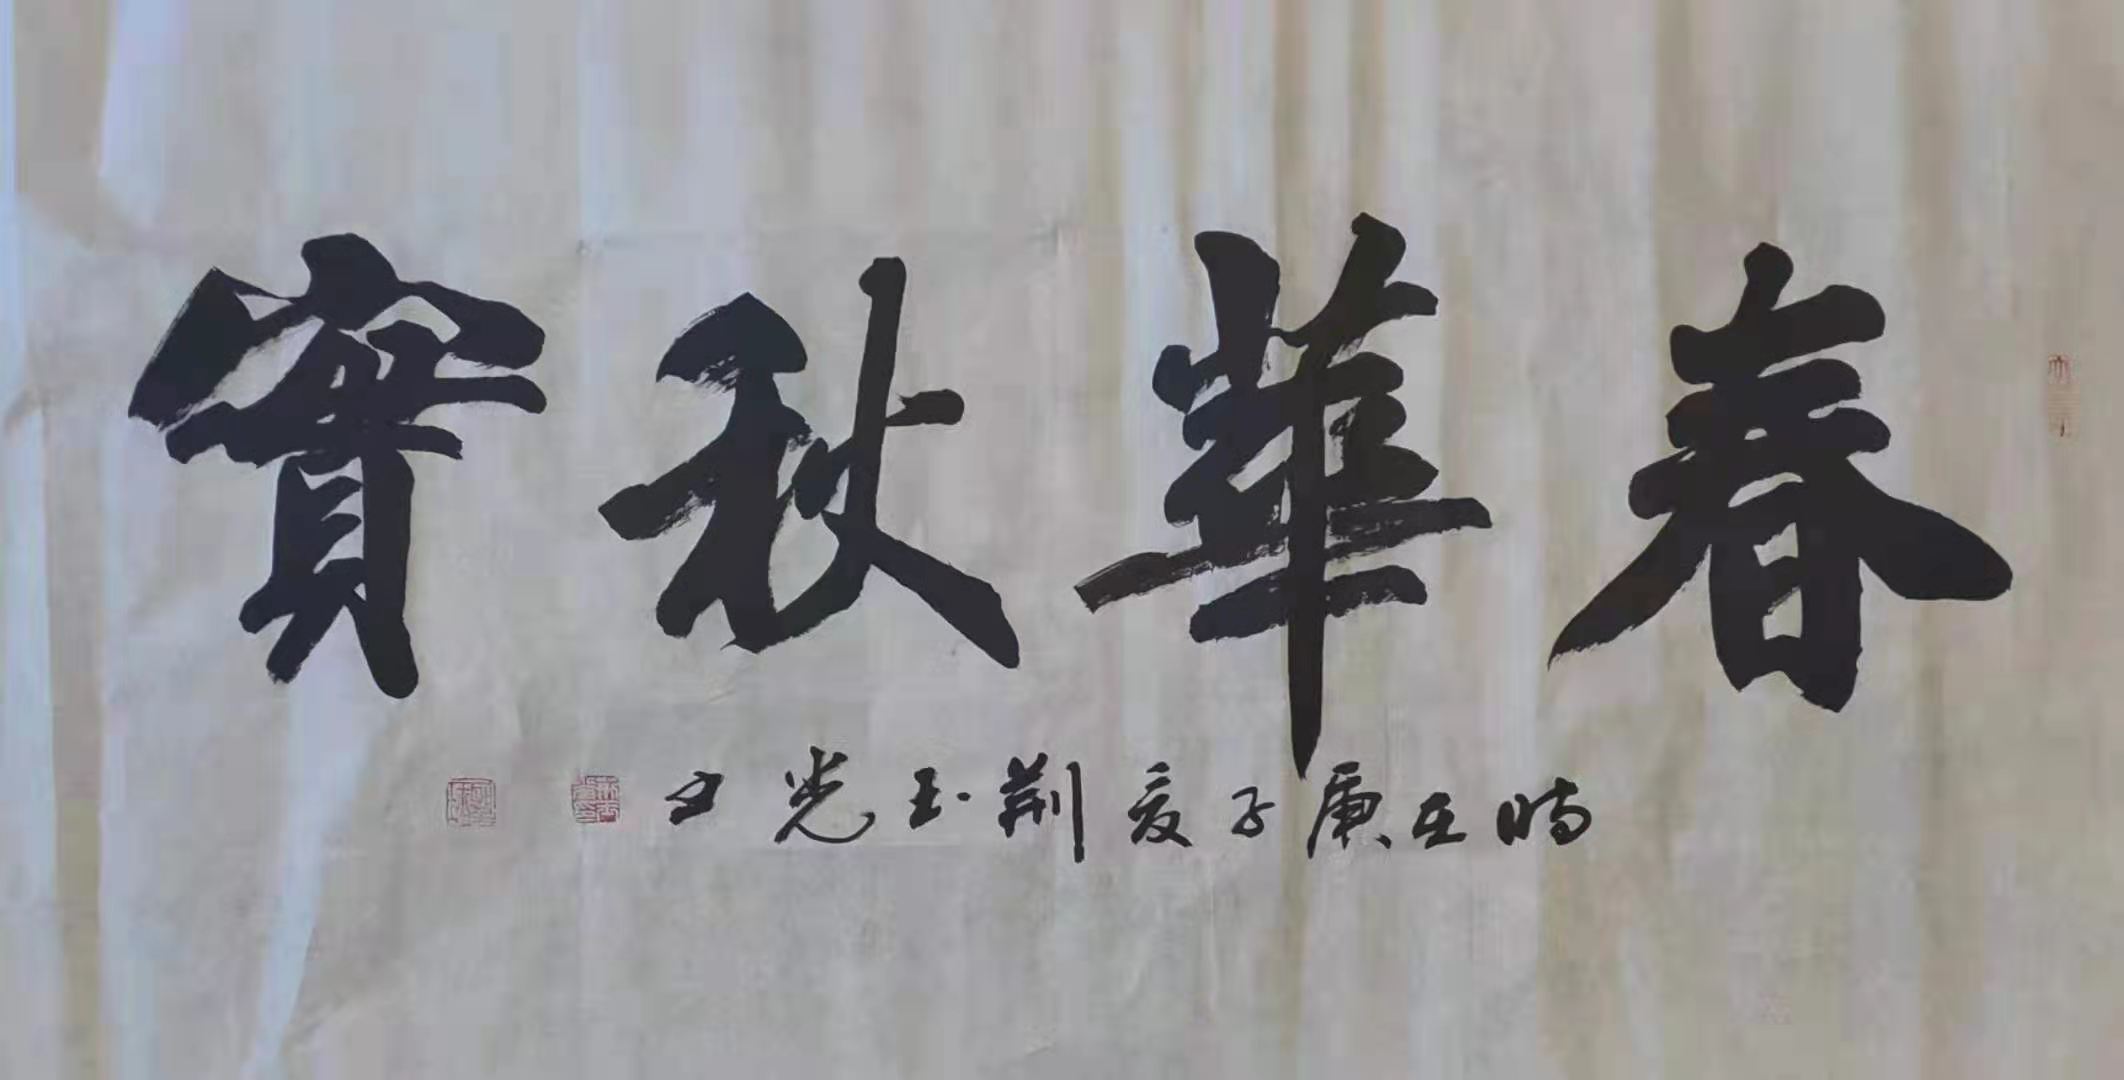 春華秋實
時在庚子夏荆玉光書